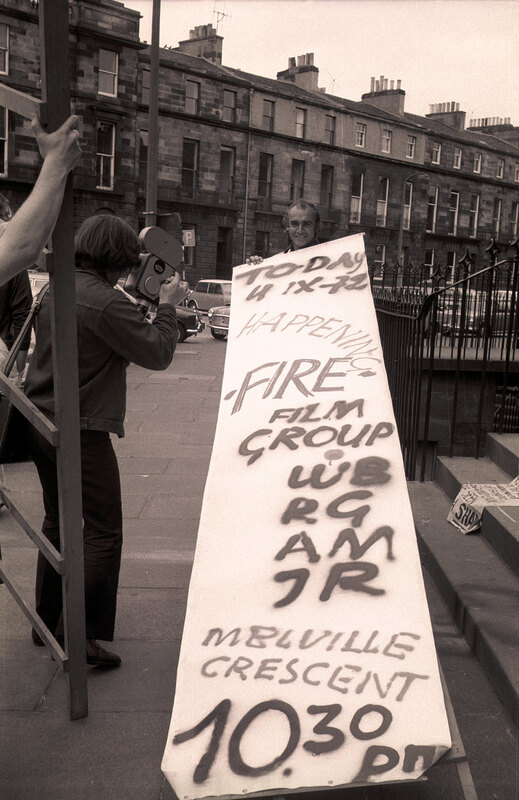 TODAY
4 IX-72
HAPPENING
·FIRE·
FILM
GROUP
WB
RG
AM
JR
MELVILLE
CRESCENT
10.30
pm